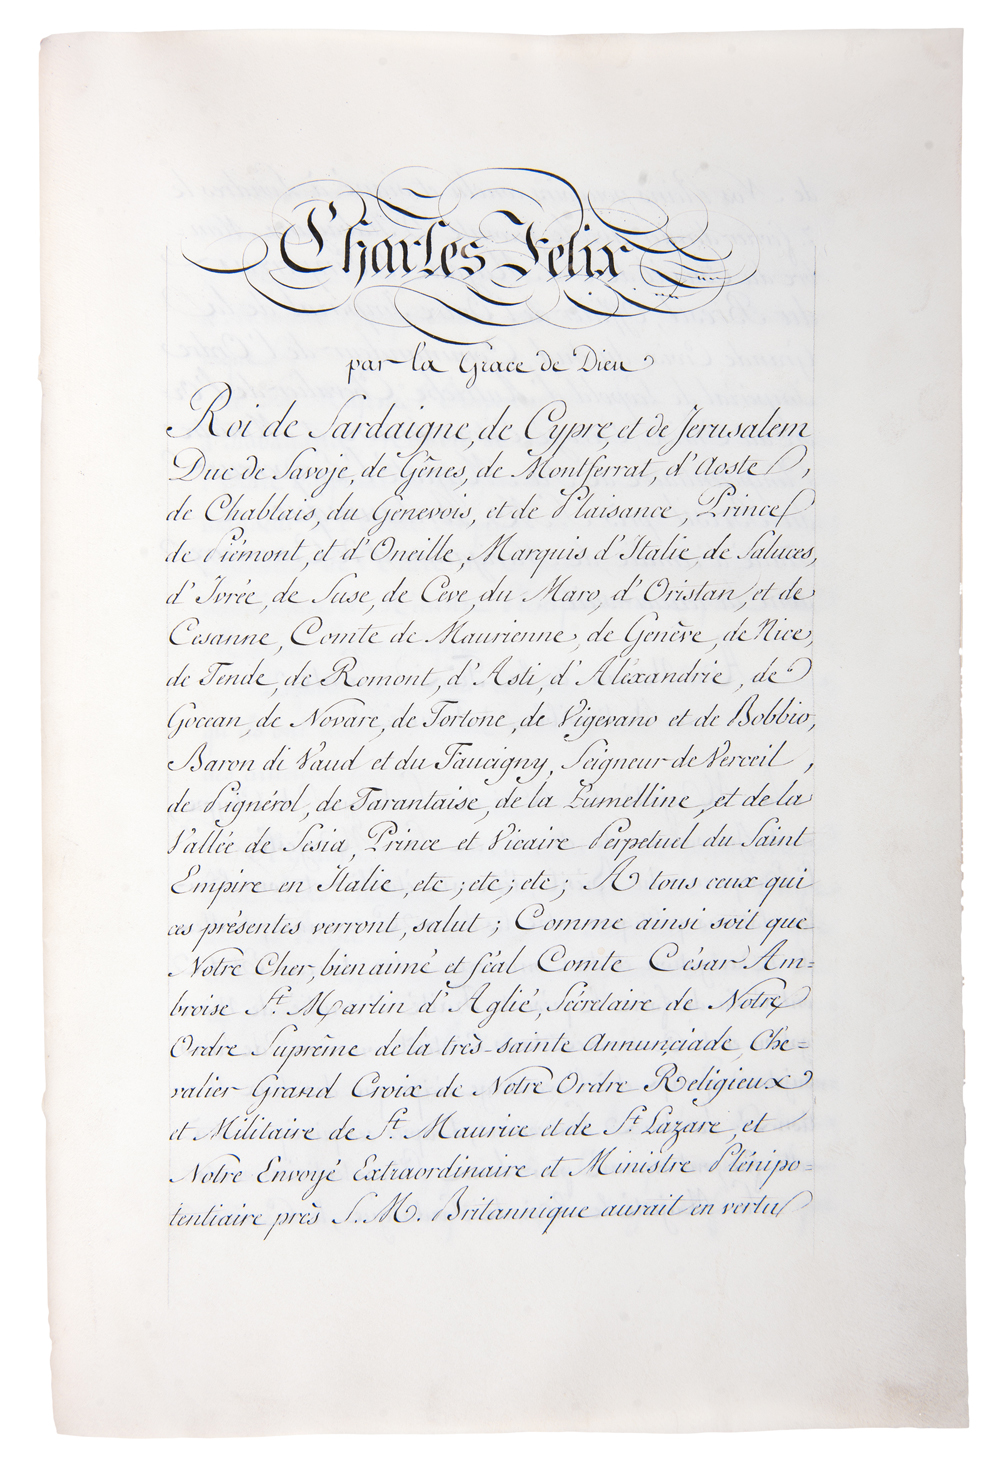 Charles Felix
par la Grace de Dieu
Roi de Sardaigne, de Cypre, et de Jerusalem
Duc de Savoje, de Gênes, de Montferrat, d'Aoste,
de Chablais, du Genevois, et de Plaisance, Prince
de Piémont, et d'Oneille, Marquis d'Italie, de Saluces,
d'Ivrée, de Suse, de Ceve, du Maro, d'Oristan, et de
Cesanne, Comte de Maurienne, de Genève, de Nice,
de Tende, de Romont, d'Asti, d'Aléxandrie, de
Gocean, de Novare, de Tortone, de Vigevano et de Bobbio,
Baron di Vaud et du Faucigny, Seigneur de Verceil,
de Pignérol, de Tarantaise, de la Lumelline, et de la
Vallée de Sesia, Prince et Vicaire Perpetuel du Saint
Empire en Italie, etc; etc; etc; A tous ceux qui
ces présentes verront, salut; Comme ainsi soit que
Notre Cher, bien aimé et féal Comte César Am=
broise St. Martin d'Aglié, Sécretaire de Notre
Ordre Suprême de la très-sainte Annunciade, Che=
valier Grand Croix de Notre Ordre Religieux
et Militaire de St. Maurice et de St. Lazare, et
Notre Envoyé Extraordinaire et Ministre Plénipo=
tentiaire près S. M. Britannique aurait en vertu